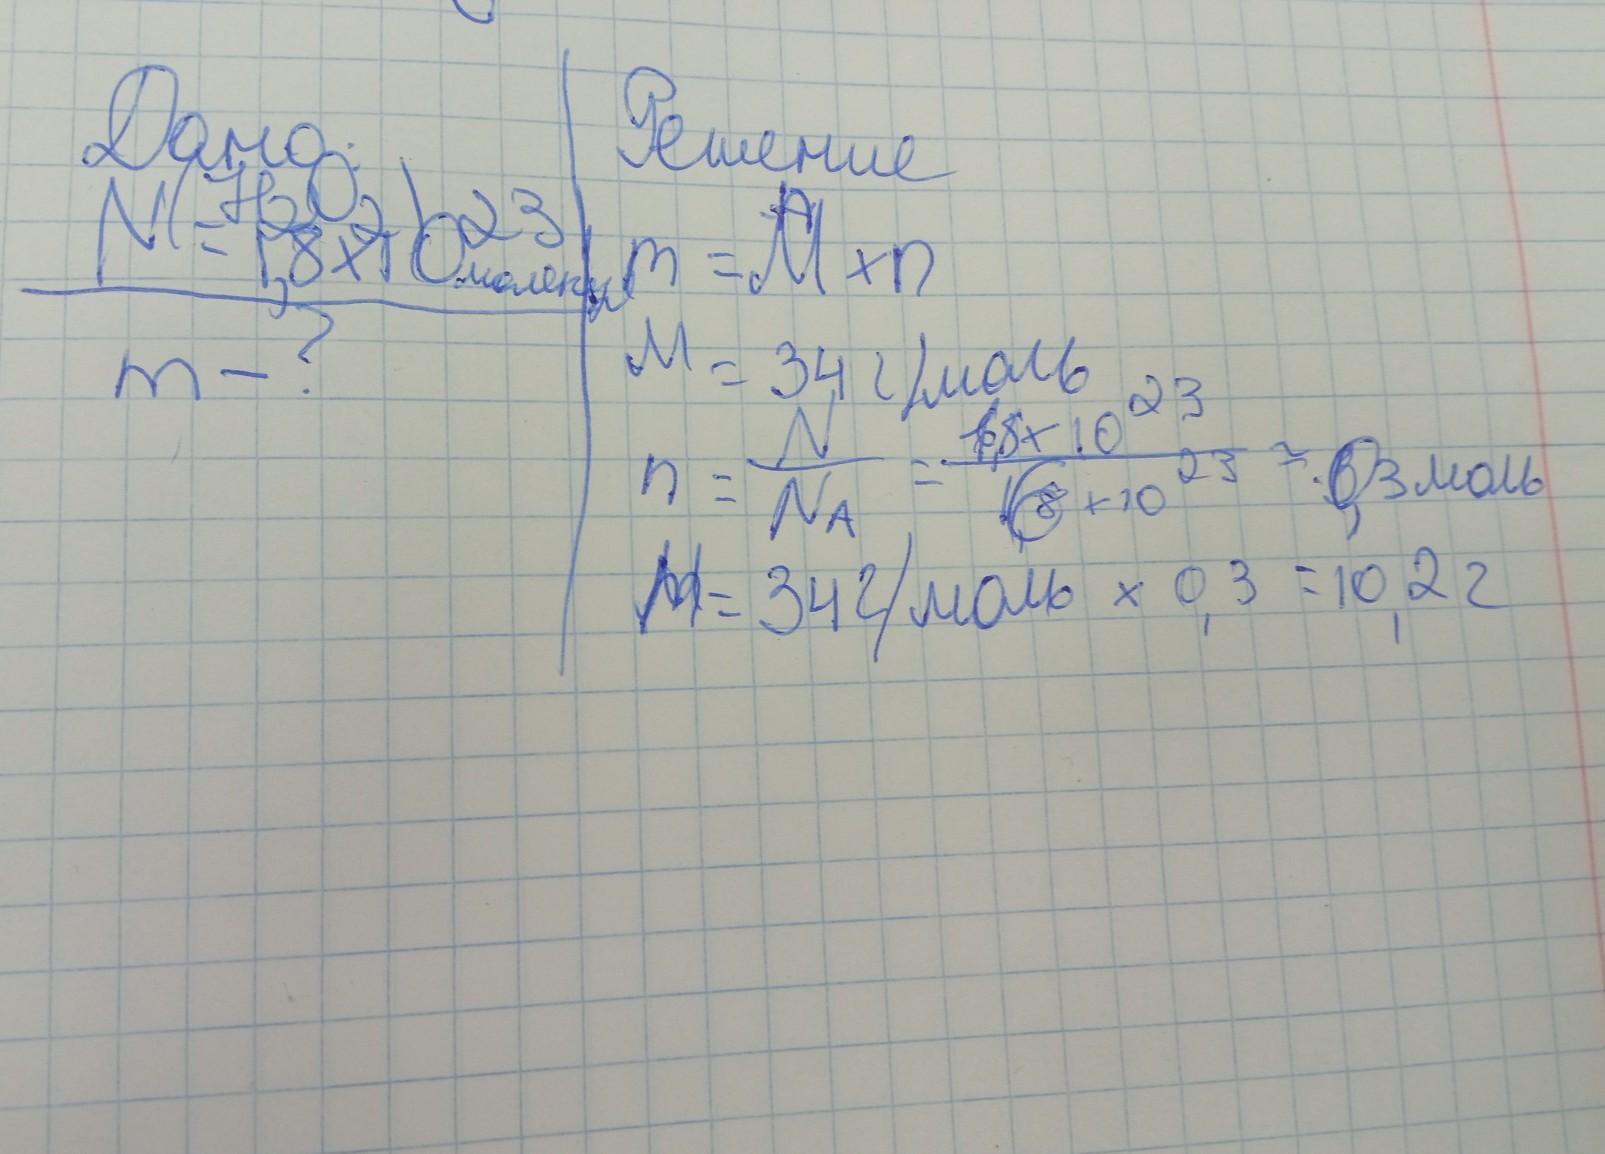 Дано:
N(H2O2)
= 1,8x10^23 молекул
m - ?
Решение
m = M x n
M = 34 г/моль
n = N/NA = 1,8x10^23 / 6x10^23 = 0,3 моль
M = 34 г/моль x 0,3 = 10,2 г